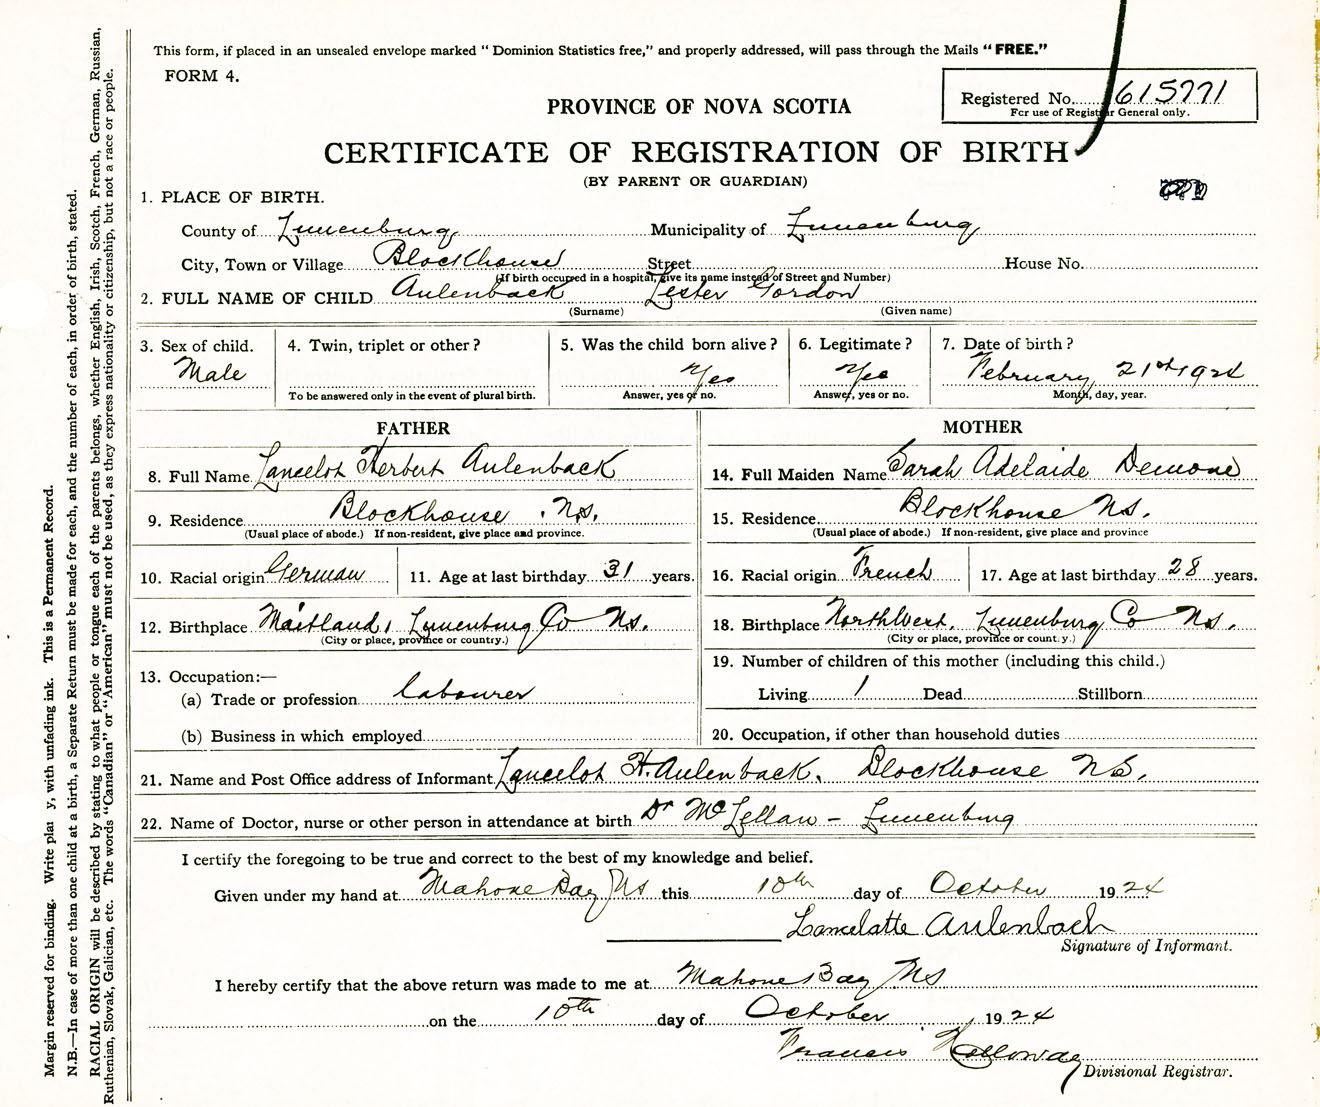 This form, if placed in an unsealed envelope marked "Dominion Statistics free," and properly addressed, will pass through the Mails "FREE."
FORM 4.
Registered No. 615771
For use of Registrar General only.
PROVINCE OF NOVA SCOTIA
CERTIFICATE OF REGISTRATION OF BIRTH
(BY PARENT OR GUARDIAN)
1. PLACE OF BIRTH.
County of Lunenburg Municipality of Lunenburg
City, Town or Village Blockhouse Street House No.
(If birth occurred in a hospital, give its name instead of Street and Number)
2. FULL NAME OF CHILD Aulenback Lester Gordon
(Surname) (Given name)
3. Sex of child. 4. Twin, triplet or other? 5. Was the child born alive? 6. Legitimate? 7. Date of birth?
Male Yes Yes February 21st 1924
To be answered only in the event of plural birth. Answer, yes or no. Answer, yes or no. Month, day, year.
FATHER MOTHER
8. Full Name Lancelot Herbert Aulenback 14. Full Maiden Name Sarah Adelaide Demone
9. Residence Blockhouse . N.S. 15. Residence Blockhouse N.S.
(Usual place of abode.) If non-resident, give place and province. (Usual place of abode.) If non-resident, give place and province
10. Racial origin German 11. Age at last birthday 31 years. 16. Racial origin French 17. Age at last birthday 28 years.
12. Birthplace Maitland, Lunenburg Co Ns. 18. Birthplace NorthWest, Lunenburg Co Ns.
(City or place, province or country.) (City or place, province or count.y.)
13. Occupation:— 19. Number of children of this mother (including this child.)
(a) Trade or profession labourer Living 1 Dead Stillborn
(b) Business in which employed 20. Occupation, if other than household duties
21. Name and Post Office address of Informant Lancelot H. Aulenback. Blockhouse N.S.
22. Name of Doctor, nurse or other person in attendance at birth Dr McLellan - Lunenburg
I certify the foregoing to be true and correct to the best of my knowledge and belief.
Given under my hand at Mahone Bay NS this 10th day of October 1924
Lancelatte Aulenbach
Signature of Informant.
I hereby certify that the above return was made to me at Mahone Bay NS
on the 10th day of October 1924
Francis Holloway
Divisional Registrar.
Margin reserved for binding. Write plai y, with unfading ink. This is a Permanent Record.
N.B.—In case of more than one child at a birth, a Separate Return must be made for each, and the number of each, in order of birth, stated.
RACIAL ORIGIN will be described by stating to what people or tongue each of the parents belongs, whether English, Irish, Scotch, French, German, Russian,
Ruthenian, Slovak, Galician, etc. The words "Canadian" or "American" must not be used, as they express nationality or citizenship, but not a race or people.